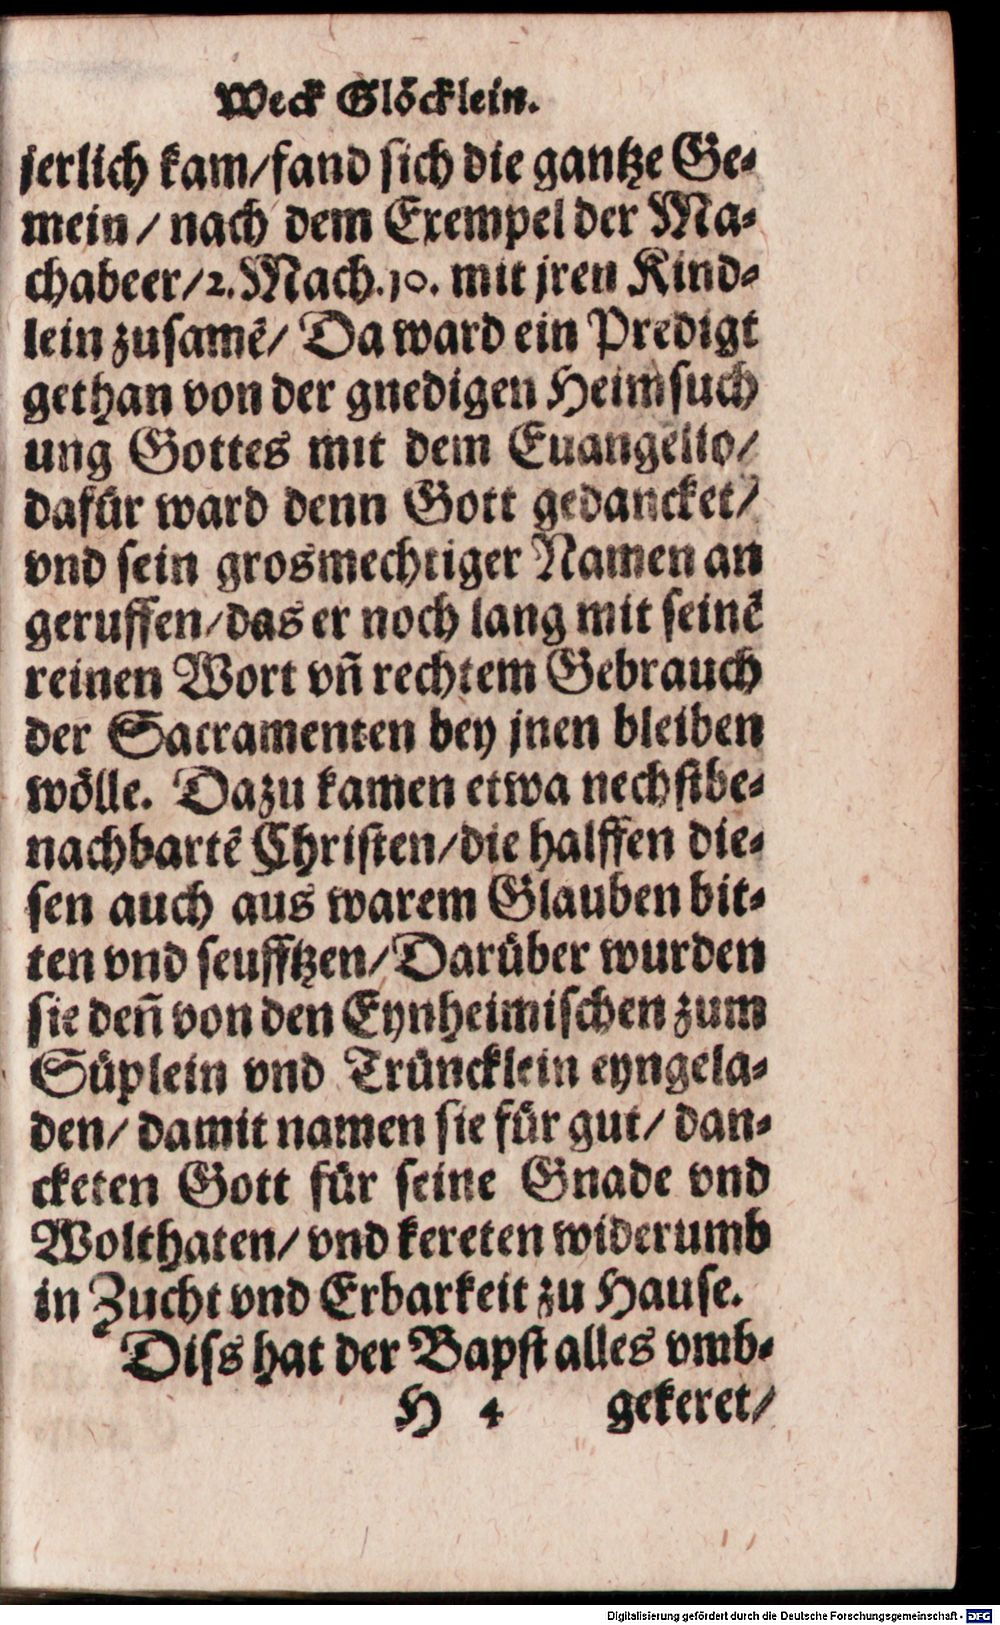 Weck Glöcklein.
jerlich kam/fand sich die gantze Ge-
mein / nach dem Exempel der Ma-
chabeer/2. Mach. 10. mit jren Kind-
lein zusamē/ Da ward ein Predigt
gethan von der gnedigen Heimsuch
ung Gottes mit dem Euangelio/
dafür ward denn Gott gedancket/
vnd sein grosmechtiger Namen an
geruffen/das er noch lang mit seinē
reinen Wort vñ rechtem Gebrauch
der Sacramenten bey jnen bleiben
wölle. Dazu kamen etwa nechstbe-
nachbartē Christen/die halffen die-
sen auch aus warem Glauben bit-
ten vnd seufftzen/Darüber wurden
sie deñ von den Eynheimischen zum
Süplein vnd Trüncklein eyngela-
den/ damit namen sie für gut/ dan-
cketen Gott für seine Gnade vnd
Wolthaten/ vnd kereten widerumb
in Zucht vnd Erbarkeit zu Hause.
Diss hat der Bapst alles vmb-
H 4 gekeret/
Digitalisierung gefördert durch die Deutsche Forschungsgemeinschaft - DFG